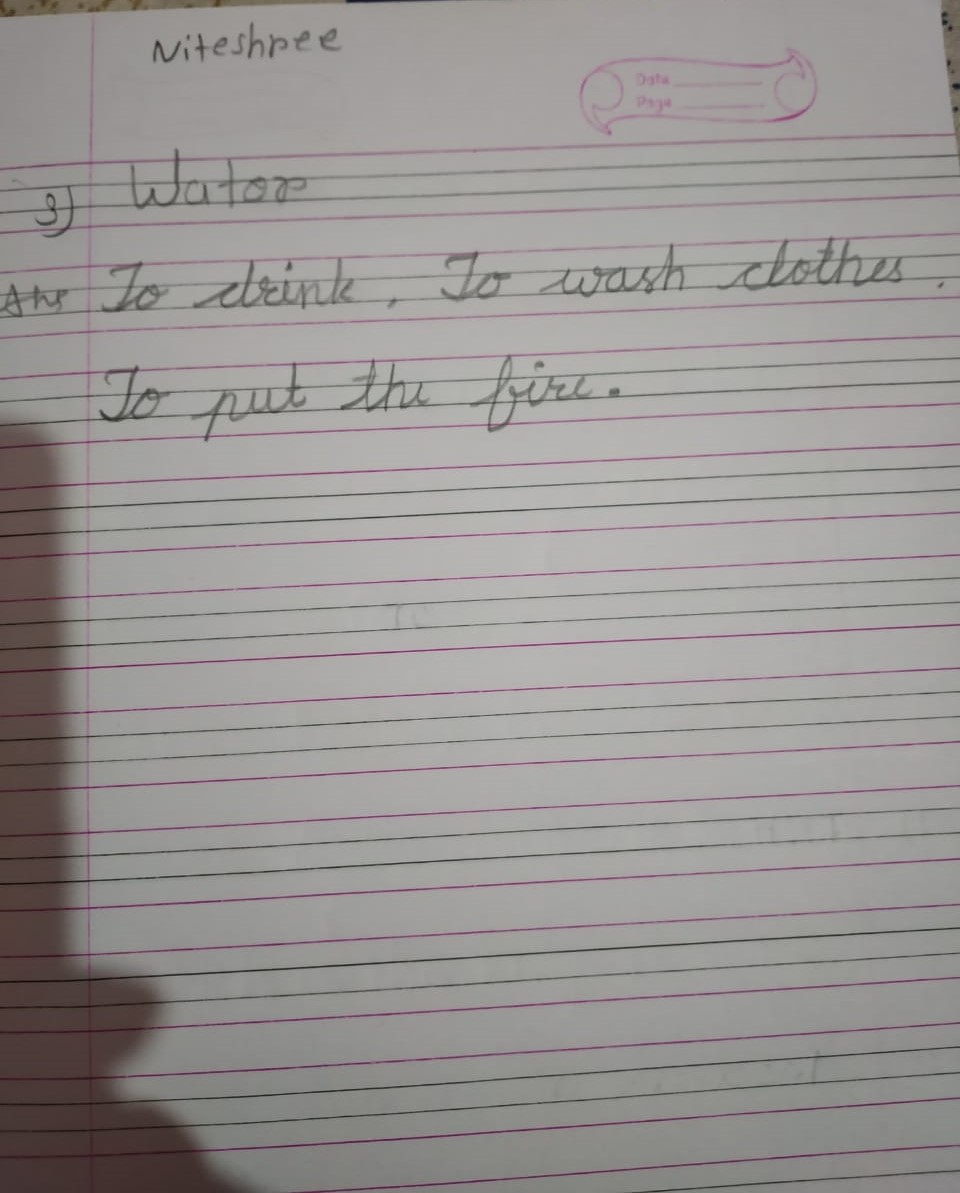 Niteshree
Date
Page
3) Water
Ans To drink, To wash clothes,
To put the fire.